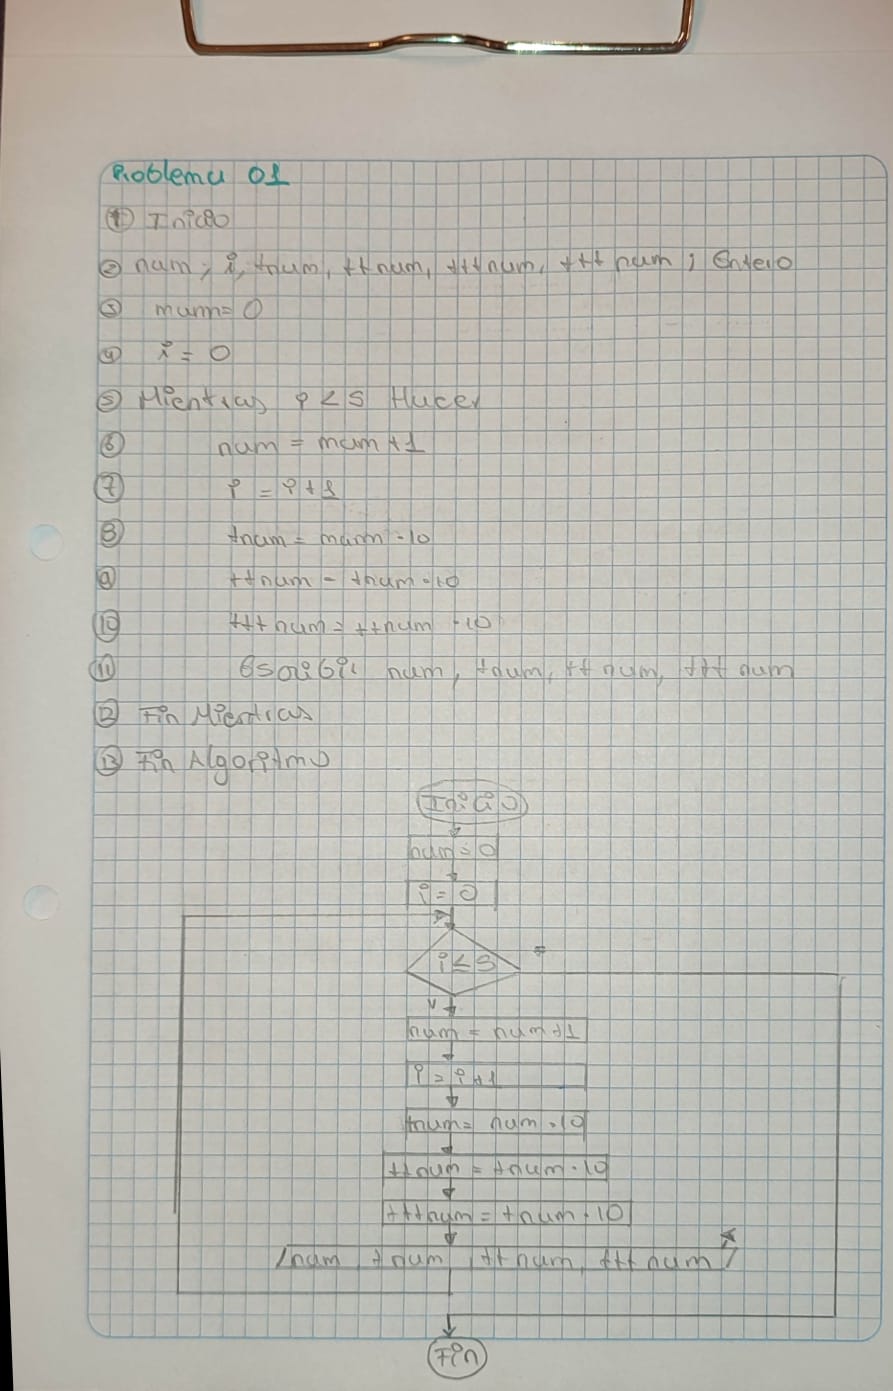 Problema 01
① Inicio
② num, i, tnum, ttnum, tttnum, ttt num ; Entero
③ num = 0
④ i = 0
⑤ Mientras i < 5 Hacer
⑥ num = num + 1
⑦ i = i + 1
⑧ tnum = num · 10
⑨ ttnum = tnum · 10
⑩ tttnum = ttnum · 10
⑪ Escribir num, tnum, ttnum, ttt num
⑫ Fin Mientras
⑬ Fin Algoritmo
Inicio
num = 0
i = 0
i ≤ 5 F
V
num = num + 1
i = i + 1
tnum = num · 10
ttnum = tnum · 10
tttnum = tnum · 10
num, tnum, ttnum, ttt num
Fin